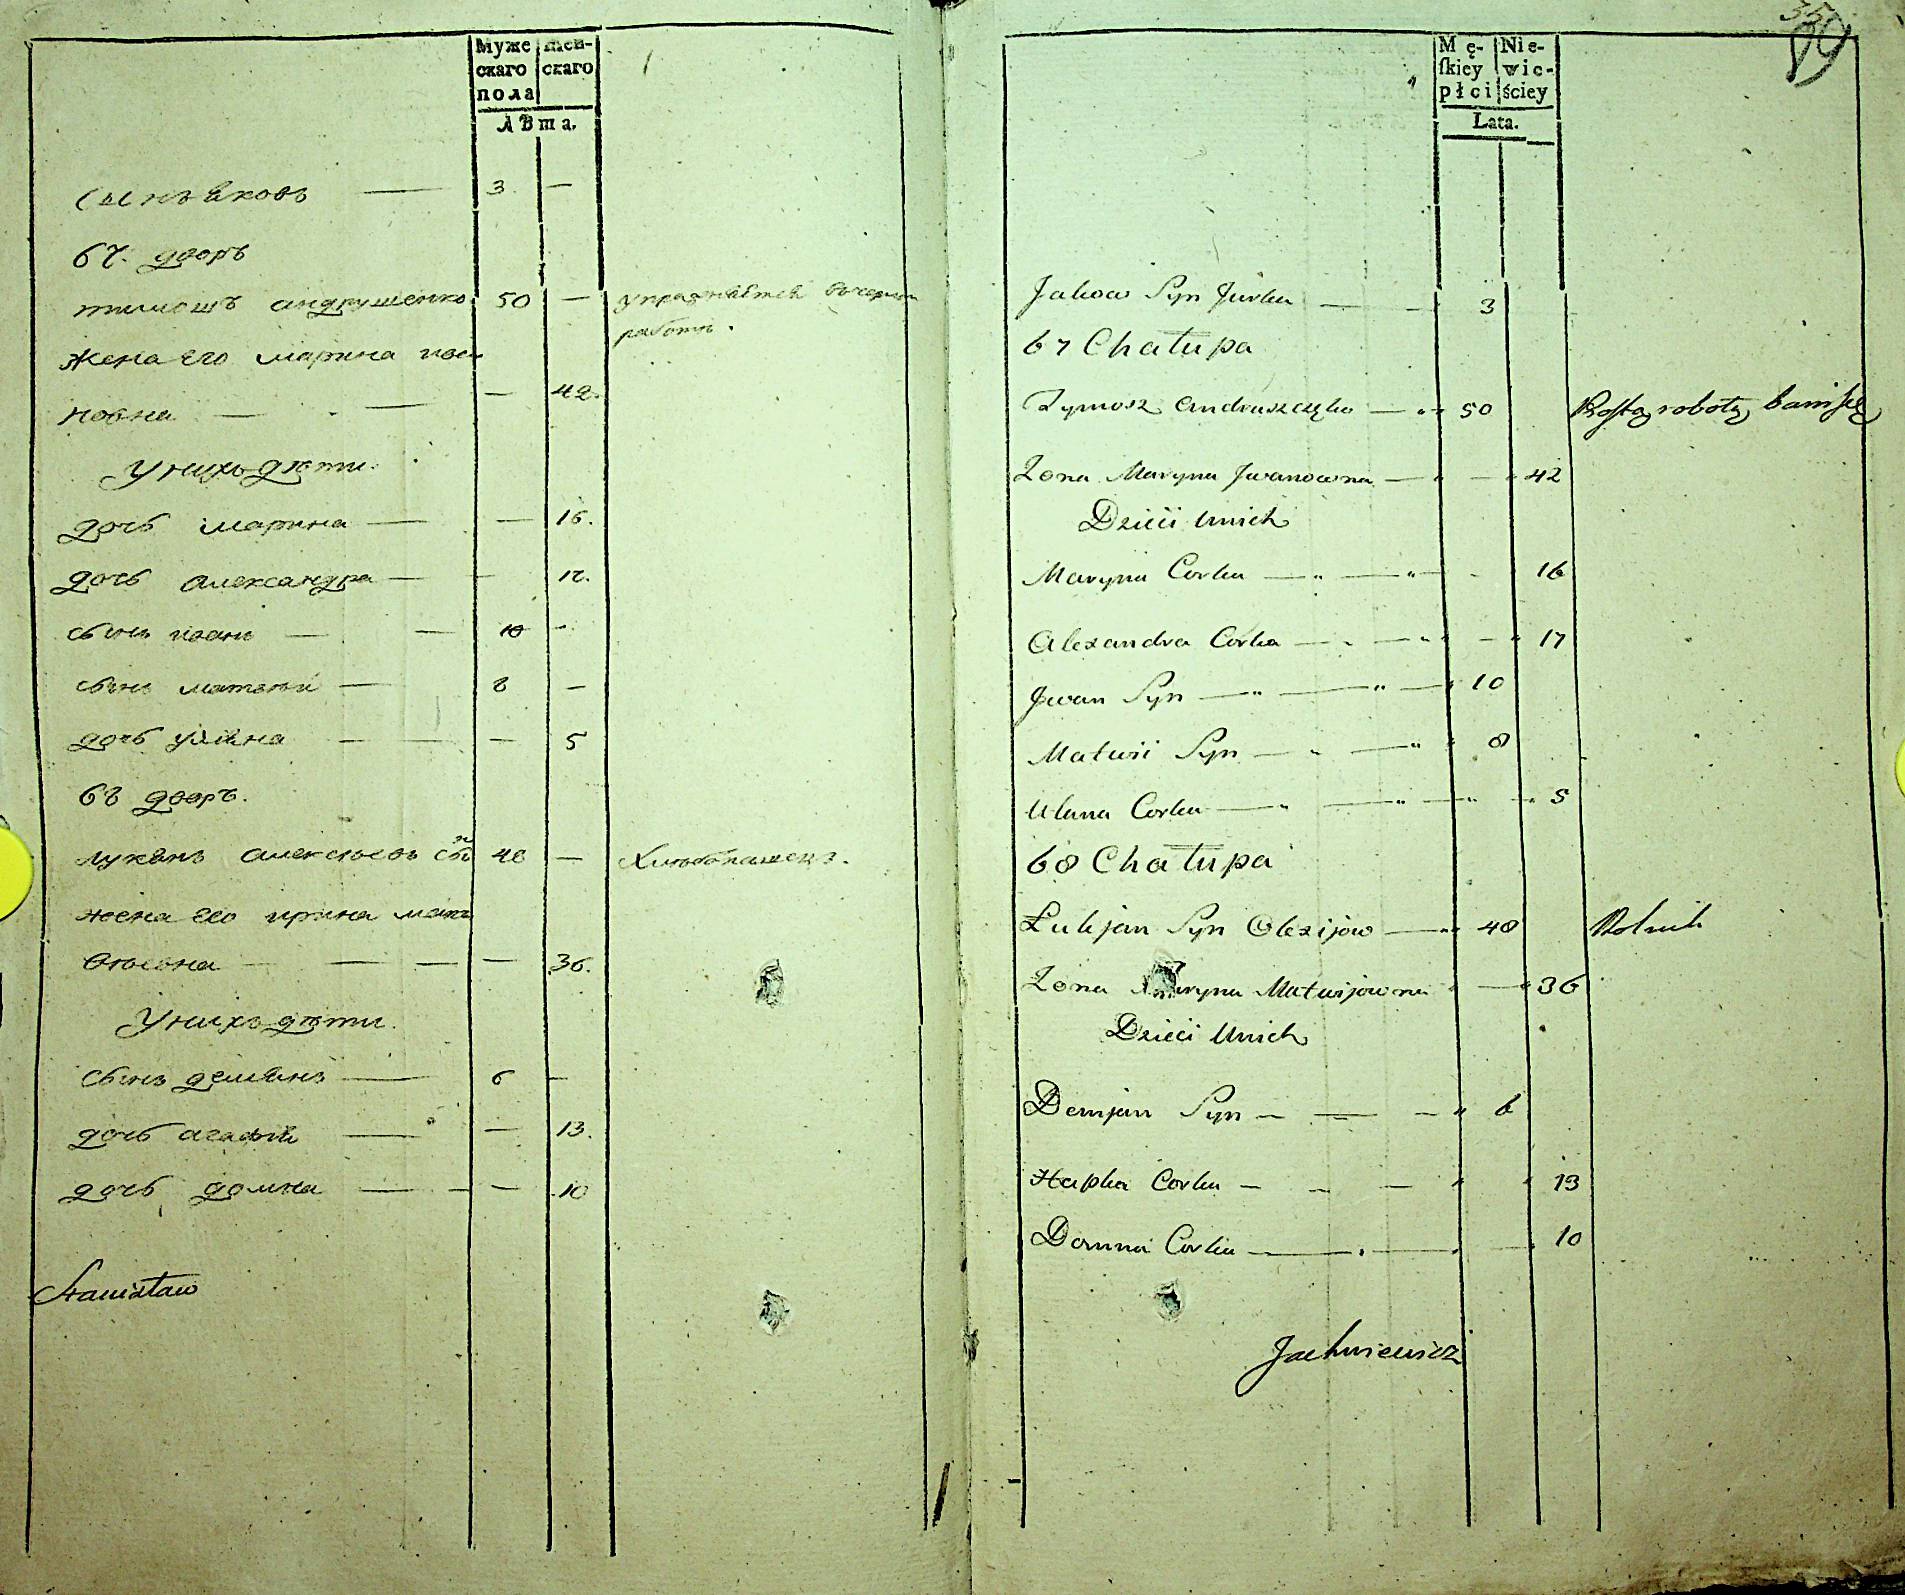 Муже Жен-
скаго скаго
пола
Лѣта.
Сынъ Яковъ — 3 —
67. дворъ
тимошъ андрушенко 50 — упражняется вчерной
работе.
жена его марина ива
новна — — 42.
У нихъ дѣти.
дочь марина — — 16.
дочь александра — — 17.
сынъ иванъ — — 10 —
сынъ матвѣй — 8 —
дочь уляна — — 5
68 дворъ.
лукянъ алексѣевъ сынъ 48 — Хлѣбопашецъ.
жена его ирина матв
ѣевна — — 36.
У нихъ дѣти.
сынъ демянъ — 6 —
дочь агафія — — 13.
дочь домна — — 10
Stanisław
359
Mę- Nie-
ſkiey wie-
płci ściey
Lata.
Jakow Syn Jurka — 3
67 Chałupa
Tymosz Andruszczęko — 50 Prostą robotą bawi się
Żona Maryna Jwanowna — — 42
Dzieci Unich
Maryna Corka — — 16
Alexandra Corka — — 17
Jwan Syn — — 10
Matwii Syn — — 8
Ulana Corka — — 5
68 Chałupa
Łukjan Syn Olexijow — 48 Rolnik
Żona Maryna Matwijowna — 36
Dzieci Unich
Demjan Syn — — 6
Hapka Corka — — 13
Domna Corka — — 10
Jachniewicz